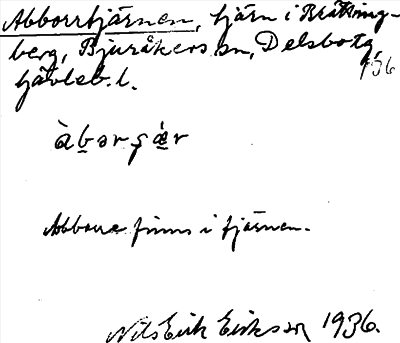 Abborrtjärnen, tjärn i Bräkning-
berg, Bjuråkers sn, Delsbotg,
156
Gävleb. l.
àbərʂǽr
Abborre finns i tjärnen.
Nils Erik Eriksson 1936.